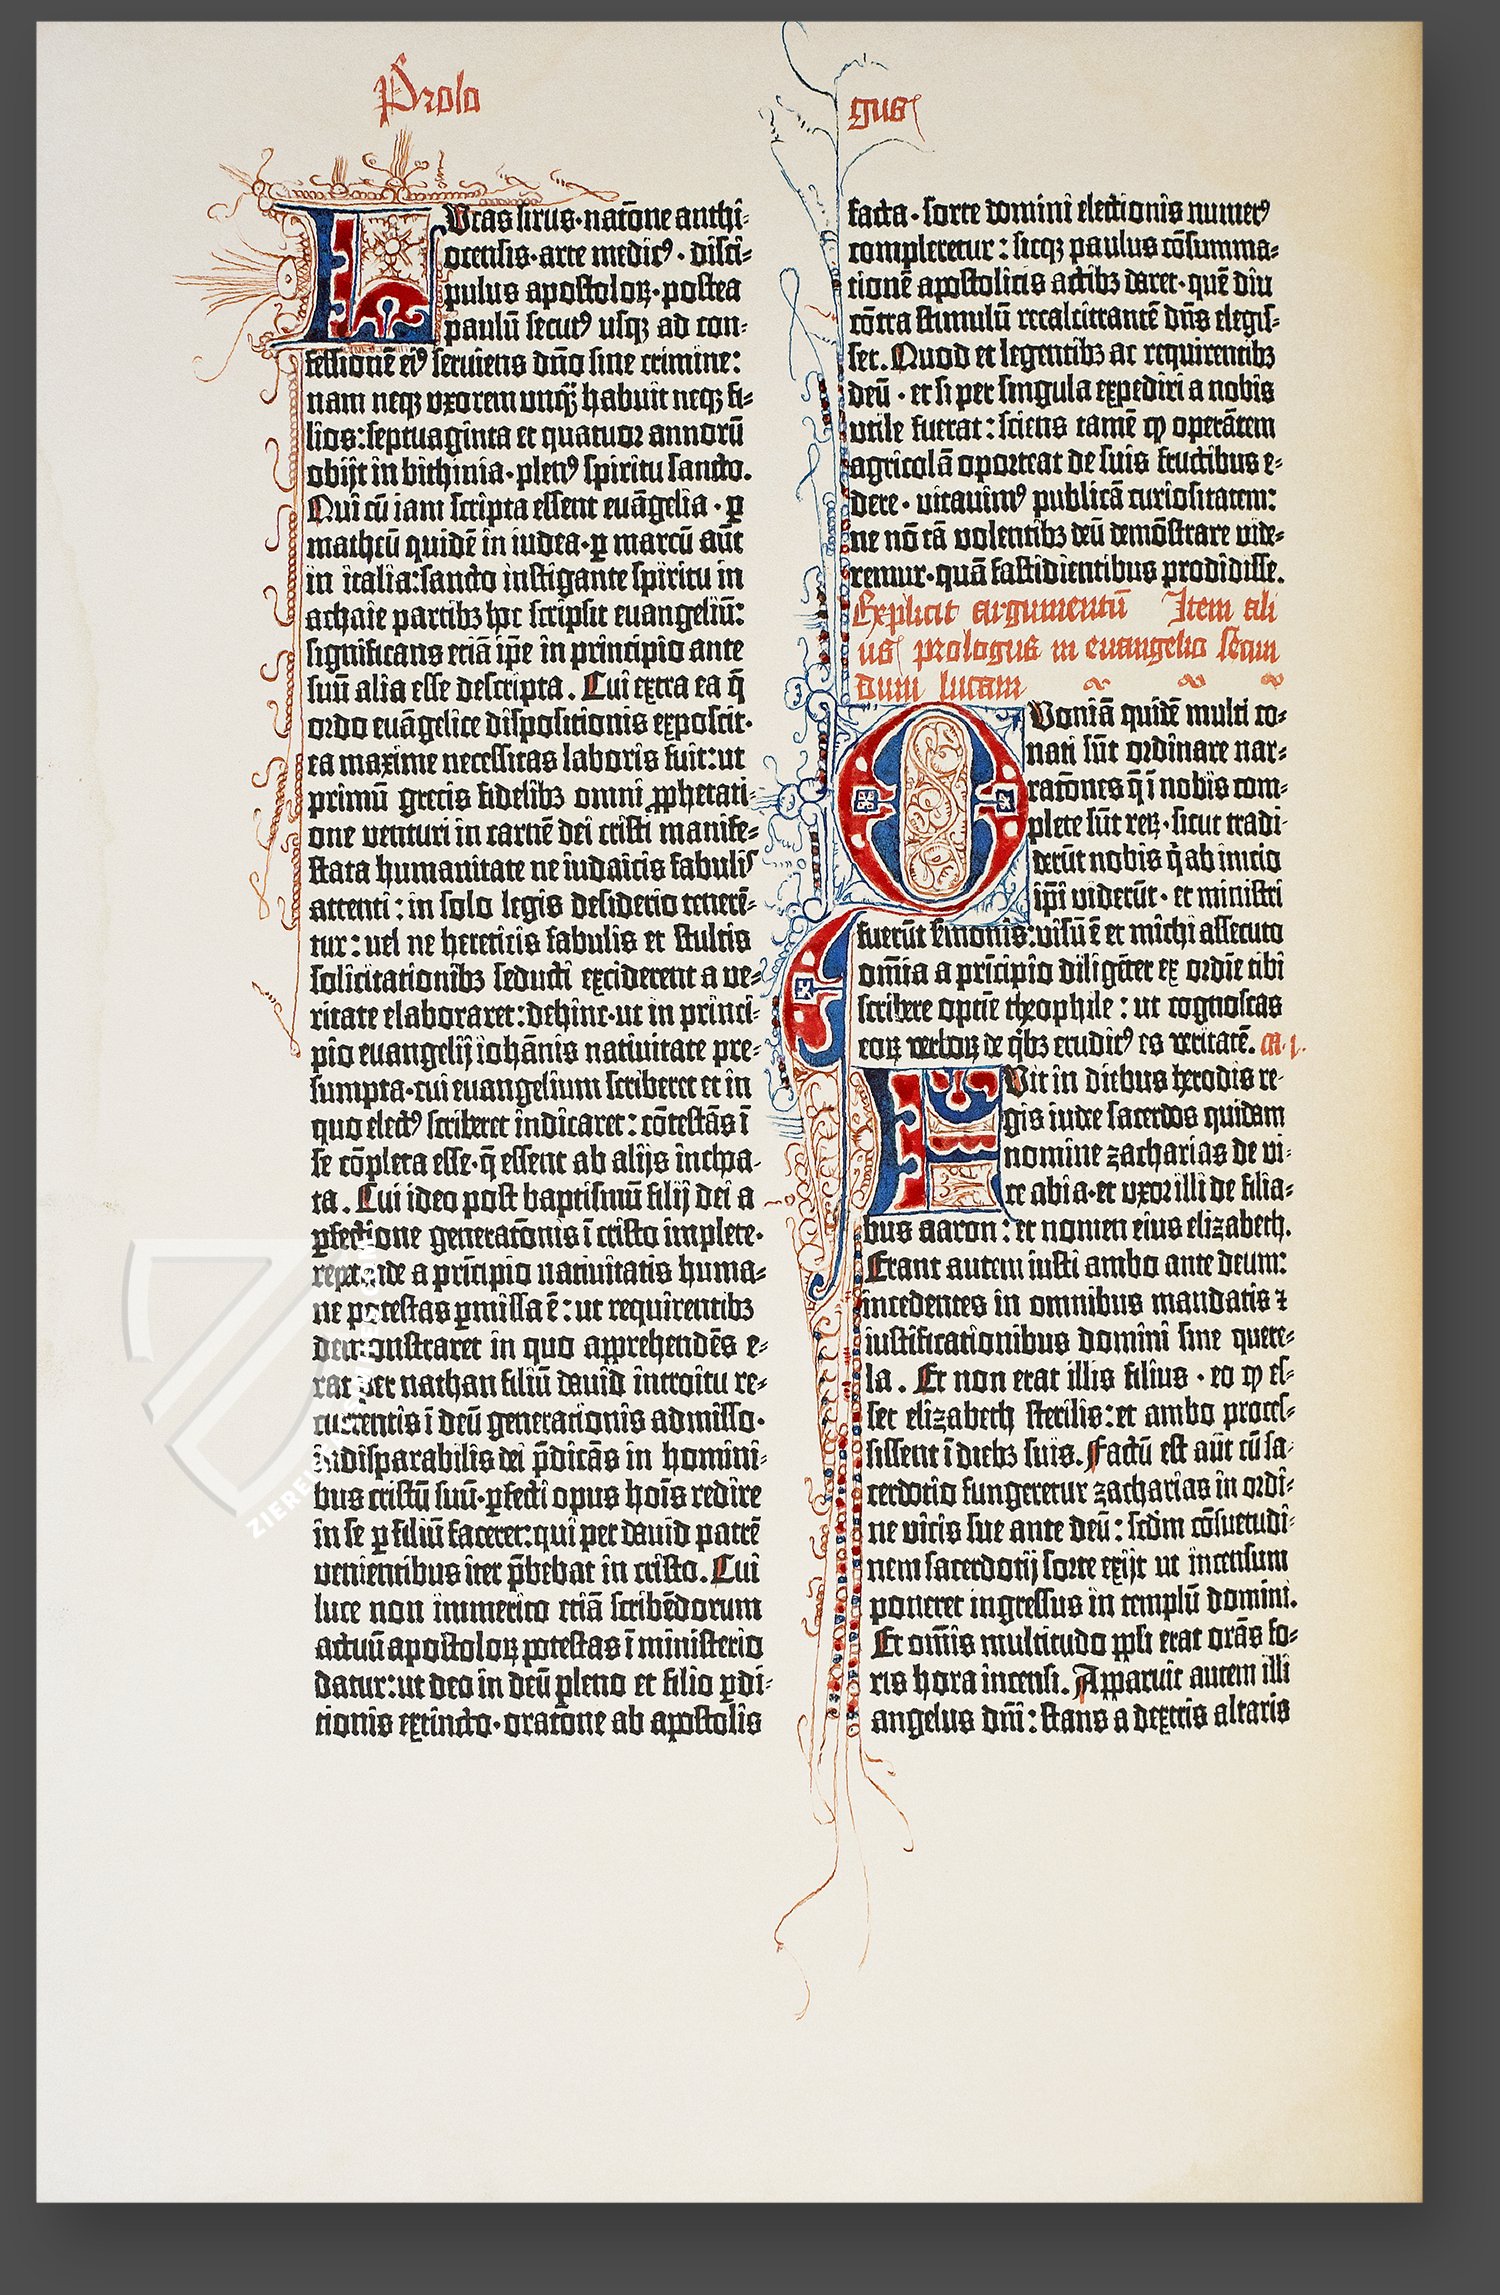 Prolo
gus
Lucas sirus·nat̄one anthi-
ocensis·arte medicꝰ·disci-
pulus apostoloꝝ·postea
paulū secutꝰ usqꝫ ad con-
fessionē eiꝰ serviens dn̄o sine crimine:
nam neqꝫ uxorem unq̄ꝫ habuit neqꝫ fi-
lios:septuaginta et quatuor annorū
obijt in bithinia·plenꝰ spiritu sancto.
Qui cū iam scripta essent euāgelia·ꝑ
matheū quidē in iudea·ꝑ marcū aūt
in italia:sancto instigante spiritu in
achaie partibꝫ hoc scripsit euangeliū:
significans eciā ip̄e in principio ante
suū alia esse descripta. Cui extra ea q̄
ordo euāgelice dispositionis exposcit·
ea maxime necessitas laboris fuit:ut
primū grecis fidelibꝫ omni ꝓphetati-
one venturi in carnē dei cristi manife-
stata humanitate ne iudaicis fabulis
attenti: in solo legis desiderio tenerē-
tur: vel ne hereticis fabulis et stultis
solicitationibꝫ seducti exciderent a ve-
ritate elaboraret:dehinc·ut in princi-
pio euangelij iohānis nativitate pre-
sumpta·cui euangelium scriberet et in
quo electꝰ scriberet indicaret: cōtestās ī
se cōpleta esse·q̄ essent ab alijs inchoa-
ta. Cui ideo post baptismū filij dei a
ꝑfectione generat̄onis ī cristo implete·
repetende a prīcipio nativitatis huma-
ne potestas ꝑmissa ē: ut requirentibꝫ
demonstraret in quo apprehendēs e-
rat per nathan filiū david introitu re-
currentis ī deū generationis admisso·
indisparabilis dei p̄dicās in homini-
bus cristū suū·ꝑfecti opus hoīs redire
in se ꝑ filiū faceret:qui per david patrē
venientibus iter p̄bebat in cristo. Cui
luce non immerito eciā scribēdorum
actuū apostoloꝝ potestas ī ministerio
datur:ut deo in deū pleno et filio ꝑdi-
tionis extincto·orat̄one ab apostolis
facta·sorte domini electionis numerꝰ
compleretur: sicqꝫ paulus cōsumma-
tionē apostolicis actibꝫ daret·quē diu
cōtra stimulū recalcitrantē dn̄s elegis-
set. Quod et legentibꝫ ac requirentibꝫ
deū·et si per singula expediri a nobis
utile fuerat: sciens tamē ꝙ operātem
agricolā oporteat de suis fructibus e-
dere·vitavimꝰ publicā curiositatem:
ne nō tā volentibꝫ deū demōstrare vide-
remur·quā fastidientibus prodidisse.
Explicit argumentū Item ali
us prologus in evangelio secun
dum lucam
Quoniā quidē multi co-
nati sūt ordinare nar-
rat̄ones q̄ ī nobis com-
plete sūt reꝝ·sicut tradi-
derūt nobis q̇ ab inicio
ip̄i viderūt·et ministri
fuerūt s̄monis:visū ē et michi assecuto
om̄ia a prīcipio diligēter ex ordīe tibi
scribere optīe theophile: ut cognoscas
eoꝝ verboꝝ de q̇bꝫ eruditꝰ es veritatē. ca. j.
Fuit in diebus herodis re-
gis iudee sacerdos quidam
nomine zacharias de vi-
ce abia·et uxor illi de filia-
bus aaron: et nomen eius elizabeth.
Erant autem iusti ambo ante deum:
incedentes in omnibus mandatis ⁊
iustificationibus domini sine quere-
la. Et non erat illis filius·eo ꝙ es-
set elizabeth sterilis:et ambo proces-
sissent ī diebꝫ suis. Factū est aūt cū sa-
cerdotio fungeretur zacharias in ordi-
ne vicis sue ante deū: scdm cōsuetudi-
nem sacerdotij sorte exijt ut incensum
poneret ingressus in templū domini.
Et om̄is multitudo ppl̄i erat orās fo-
ris hora incensi. Apparuit autem illi
angelus dn̄i: stans a dextris altaris
ZIEREIS FACSIMILES.COM